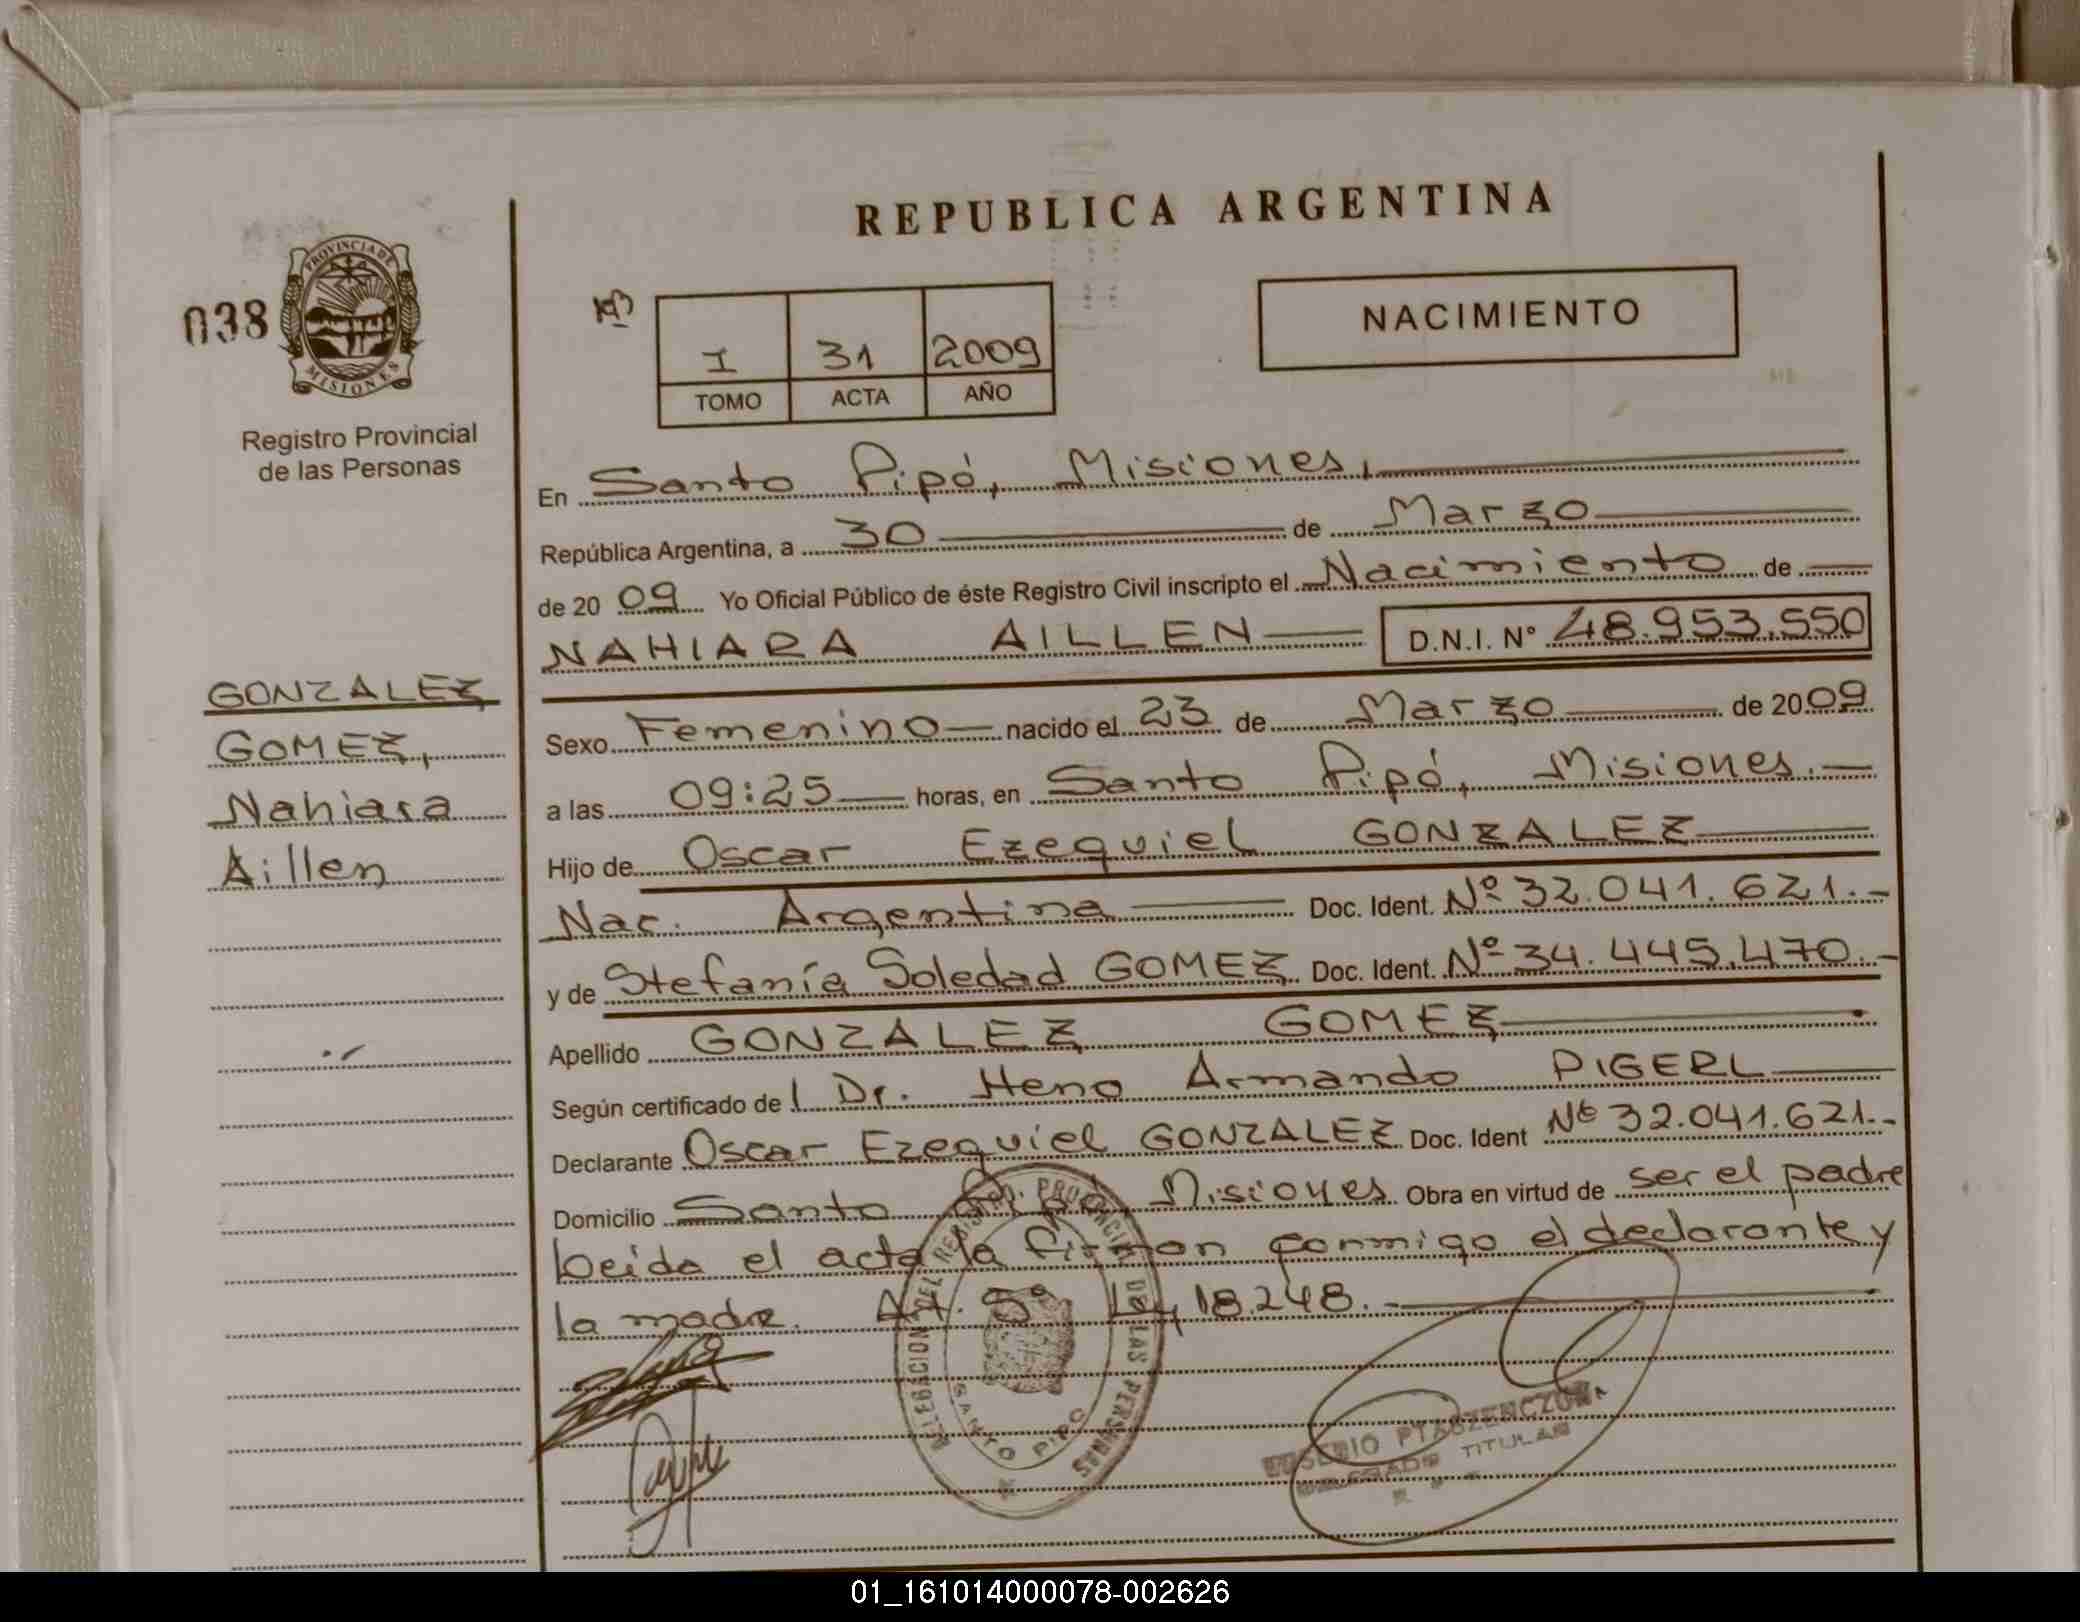 REPUBLICA ARGENTINA
038
PROVINCIA DE
MISIONES
Registro Provincial
de las Personas
I 31 2009
TOMO ACTA AÑO
NACIMIENTO
En Santo Pipó, Misiones,
República Argentina, a 30 de Marzo
de 2009 Yo Oficial Público de éste Registro Civil inscripto el Nacimiento de
NAHIARA AILLEN D.N.I. N° 48.953.550
GONZALEZ
GOMEZ,
Nahiara
Aillen
Sexo Femenino nacido el 23 de Marzo de 2009
a las 09:25 horas, en Santo Pipó, Misiones.
Hijo de Oscar Ezequiel GONZALEZ
Nac. Argentina Doc. Ident. Nº 32.041.621.-
y de Stefanía Soledad GOMEZ Doc. Ident. Nº 34.445.470.-
Apellido GONZALEZ GOMEZ
Según certificado de l Dr. Heno Armando PIGERL
Declarante Oscar Ezequiel GONZALEZ Doc. Ident Nº 32.041.621.-
Domicilio Santo Pipó, Misiones Obra en virtud de ser el padre
Leida el acta la firman conmigo el declarante y
la madre. Art. 5º Ley 18.248.-
DELEGACION DEL REGISTRO PROVINCIAL DE LAS PERSONAS
SANTO PIPO
TITULAR
01_161014000078-002626